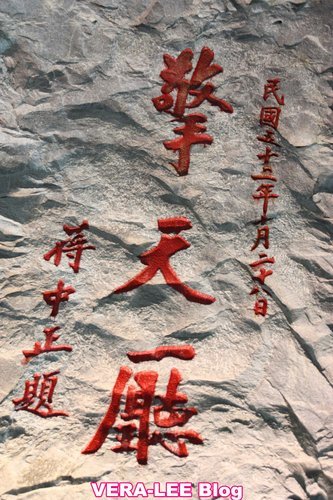 民國五十三年十月二十日
擎天廳
蔣中正題
VERA-LEE Blog